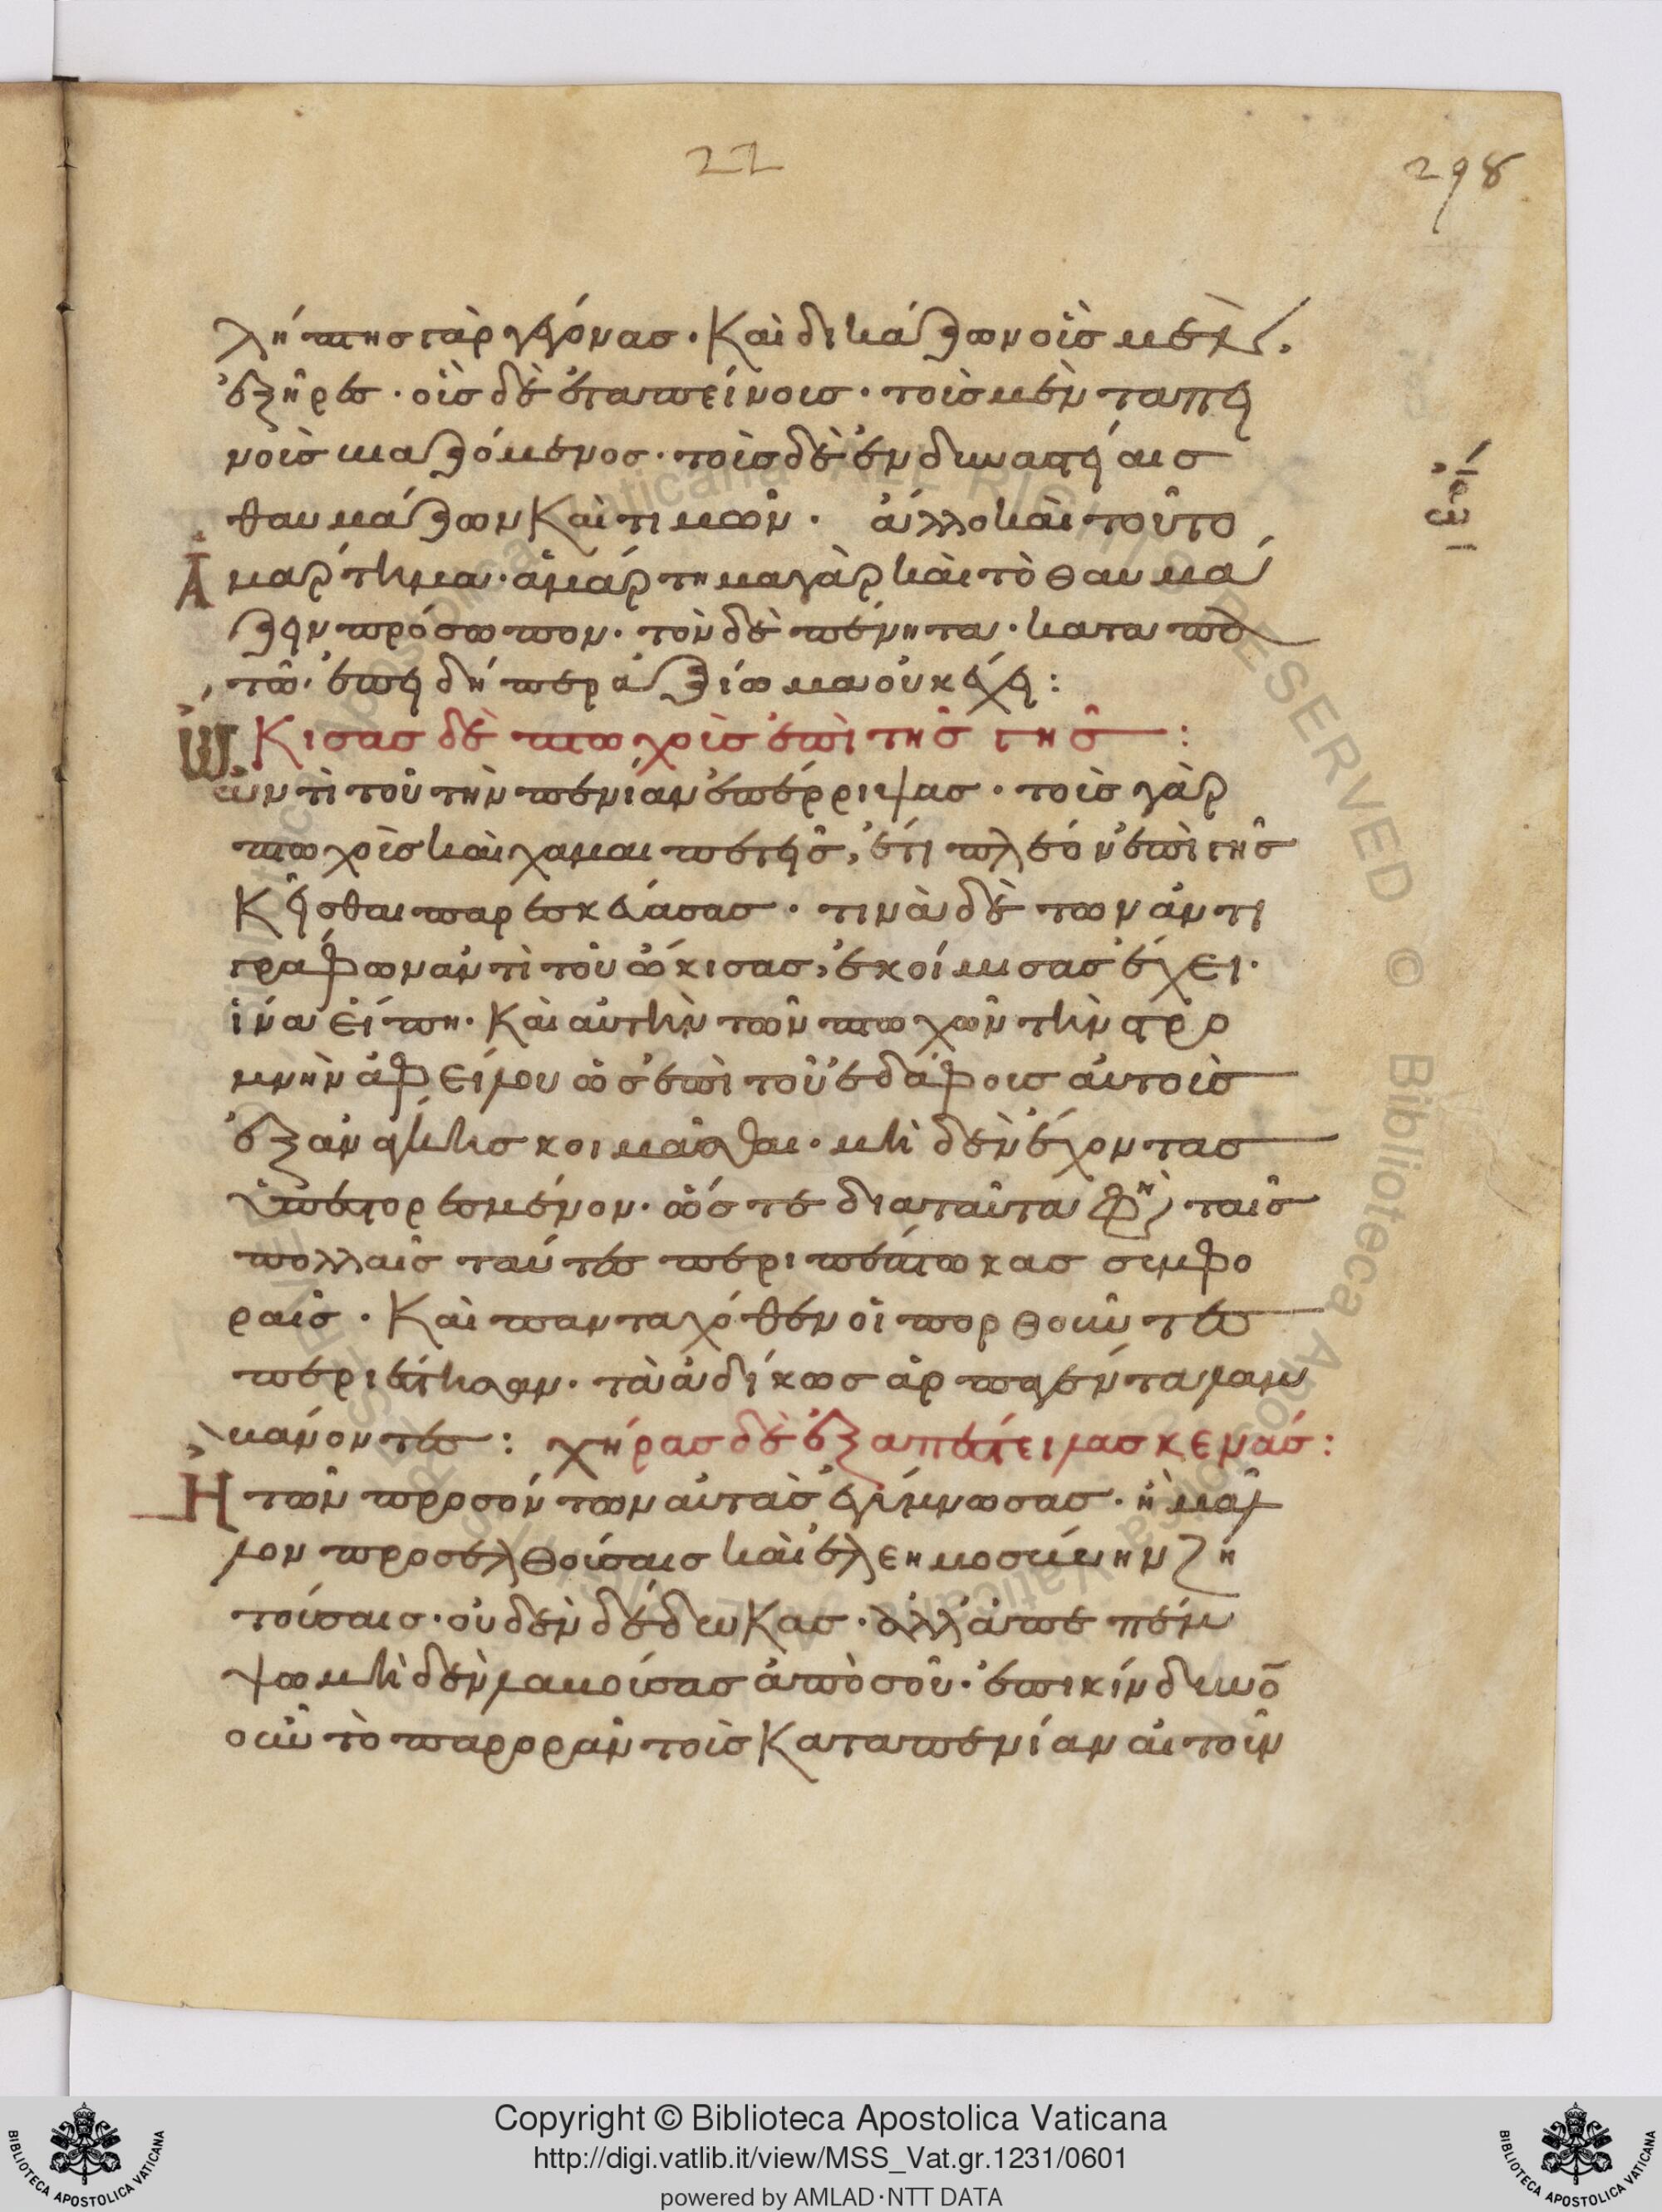 22
298
λήπτης γὰρ γέγονας. Καὶ δικάζων οἷς μὲν
ἐξῆρες. οἷς δὲ ἐταπείνοις. τοῖς μὲν ταπει
νοῖς μαζόμενος. τοῖς δὲ ἐν δυναστείαις
θαυμάζων Καὶ τιμῶν. ἄλλο καὶ τοῦτο
ἁμάρτημα. ἁμάρτημα γὰρ καὶ τὸ θαυμά
ζειν πρόσωπον. τὸν δὲ πένητα. κατα
Ὤκισας δὲ πτωχοὺς ἐπὶ τῆς γῆς:
ἀντὶ τοῦ τὴν πενίαν ἐπέρριψας. τοῖς γὰρ
πτωχοῖς καὶ χαμαιπετεῖς, ἔτι πλέον ἐπὶ γῆς
Κεῖσθαι παρεσκεύασας. τινὰ δὲ τῶν ἀντι
γράφων ἀντὶ τοῦ ὤκισας, ἐκοίμισας ἔχει.
ἵνα εἴπη. Καὶ αὐτὴν τῶν πτωχῶν τὴν στρω
μνὴν ἀφείλου ὡς ἐπὶ τοῦ ἐδάφους αὐτοὺς
ἐξ ἀνάγκης κοιμᾶσθαι. μὴ δὲν ἔχοντας
ὑπεστορεσμένον. ὥστε διὰ ταῦτα φησὶ ταῖς
πολλαῖς ταύταις περιπέπτωκας συμφο
ραῖς. Καὶ πανταχόθεν οἱ πορθοῦντες
περιέστησαν. τὰ ἀδίκως ἁρπαγέντα λαμ
βάνοντες: χήρας δὲ ἐξαπέστειλας κενάς:
Ἢ τῶν προσόντων αὐτὰς γυμνώσας. ἢ μᾶλ
λον προσελθούσαις καὶ ἐλεημοσύνην ζη
τούσαις. οὐδὲν δέδωκας. ἀλλ' ἀπεπέμ
ψω μὴ δὲν λαβούσας ἀπὸ σοῦ. ἐπικίνδυνον
οὖν τὸ παρορᾶν τοὺς Κατὰ πενίαν αἰτοῦν
Copyright © Biblioteca Apostolica Vaticana
http://digi.vatlib.it/view/MSS_Vat.gr.1231/0601
powered by AMLAD·NTT DATA
BIBLIOTECA APOSTOLICA VATICANA
BIBLIOTECA APOSTOLICA VATICANA